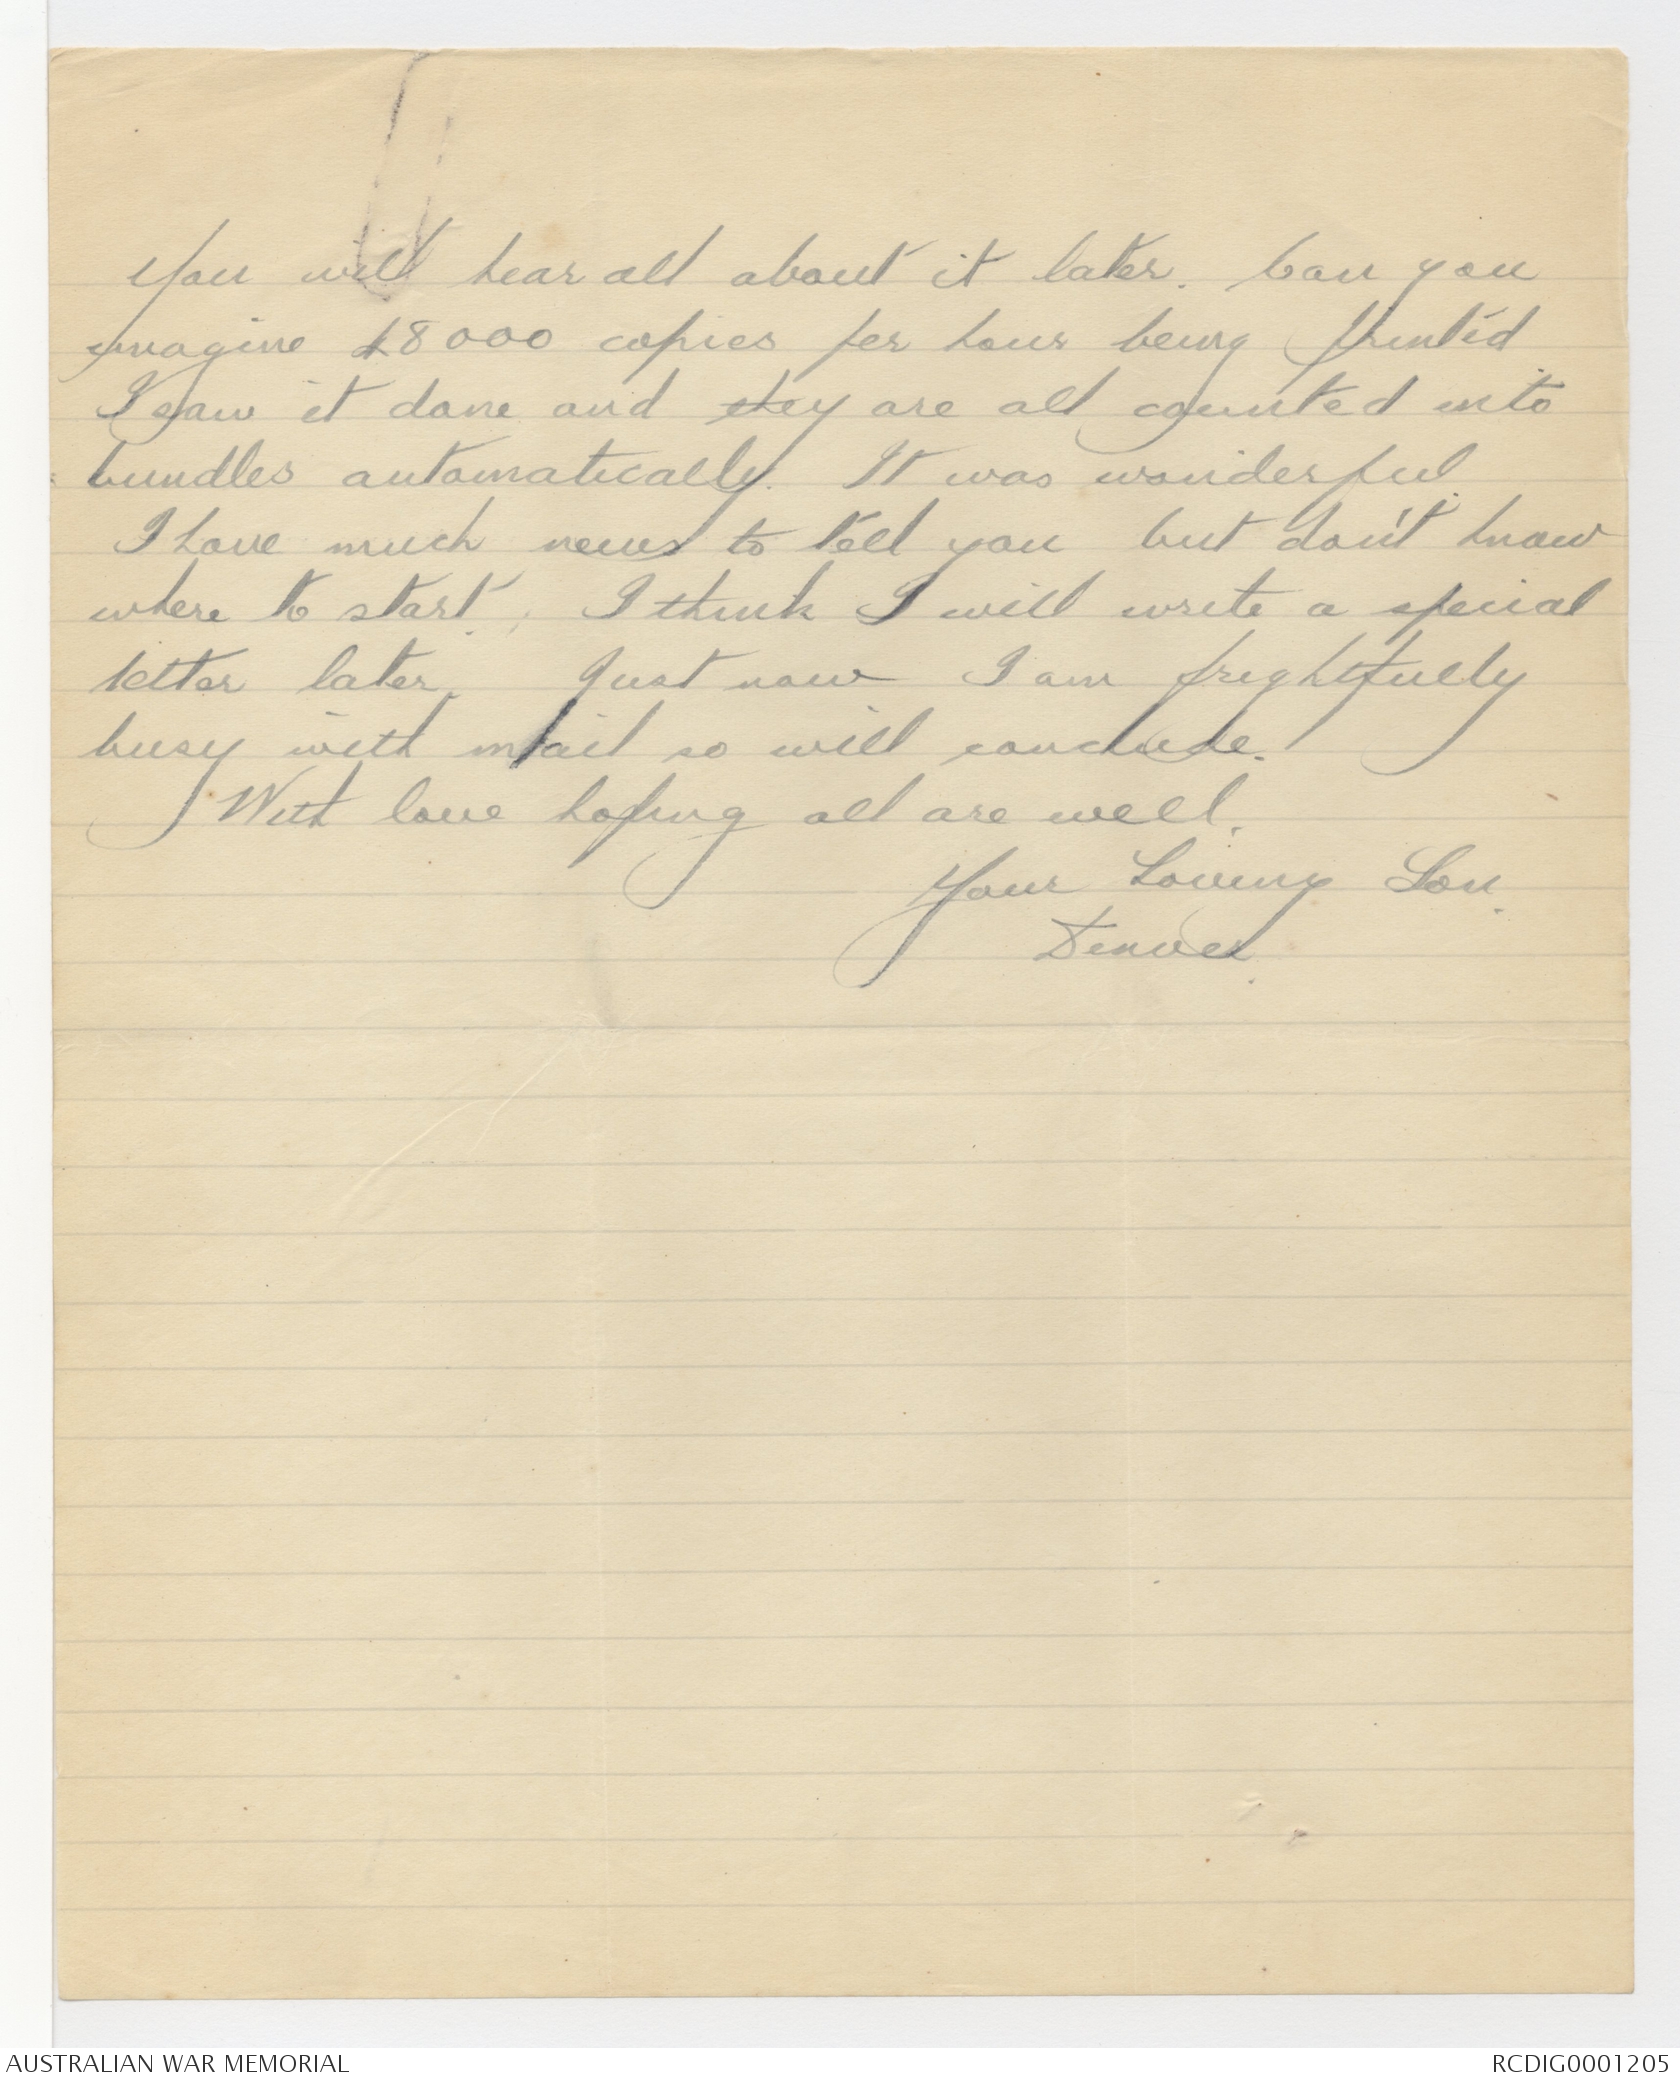 You will hear all about it later. Can you
imagine 48000 copies per hour being printed
I saw it done and they are all counted into
bundles automatically. It was wonderful.
I have much news to tell you but don't know
where to start. I think I will write a special
letter later. Just now I am frightfully
busy with mail so will conclude.
With love hoping all are well.
Your Loving Son.
Denver.
AUSTRALIAN WAR MEMORIAL
RCDIG0001205